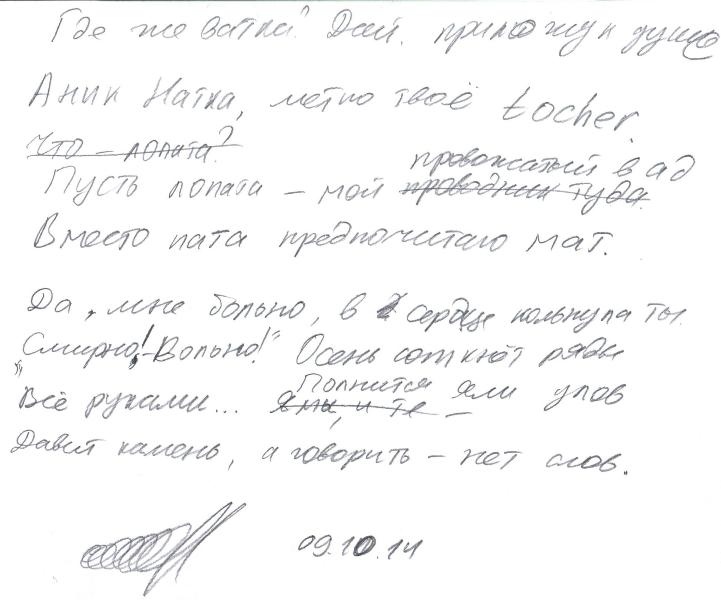 Где же ватка? Дай, приложу к душе
Аник Натка, метко твоё touché.
Что – лопата?
провожатый в ад
Пусть лопата – мой проводник туда.
Вместо пата предпочитаю мат.
Да, мне больно, в сердце кольнула ты.
„Смирно! – Вольно!" Осень сомкнёт ряды
Полнится
Всё руками... ямы, и те – ял улов
Давит камень, а говорить – нет слов.
09.10.14